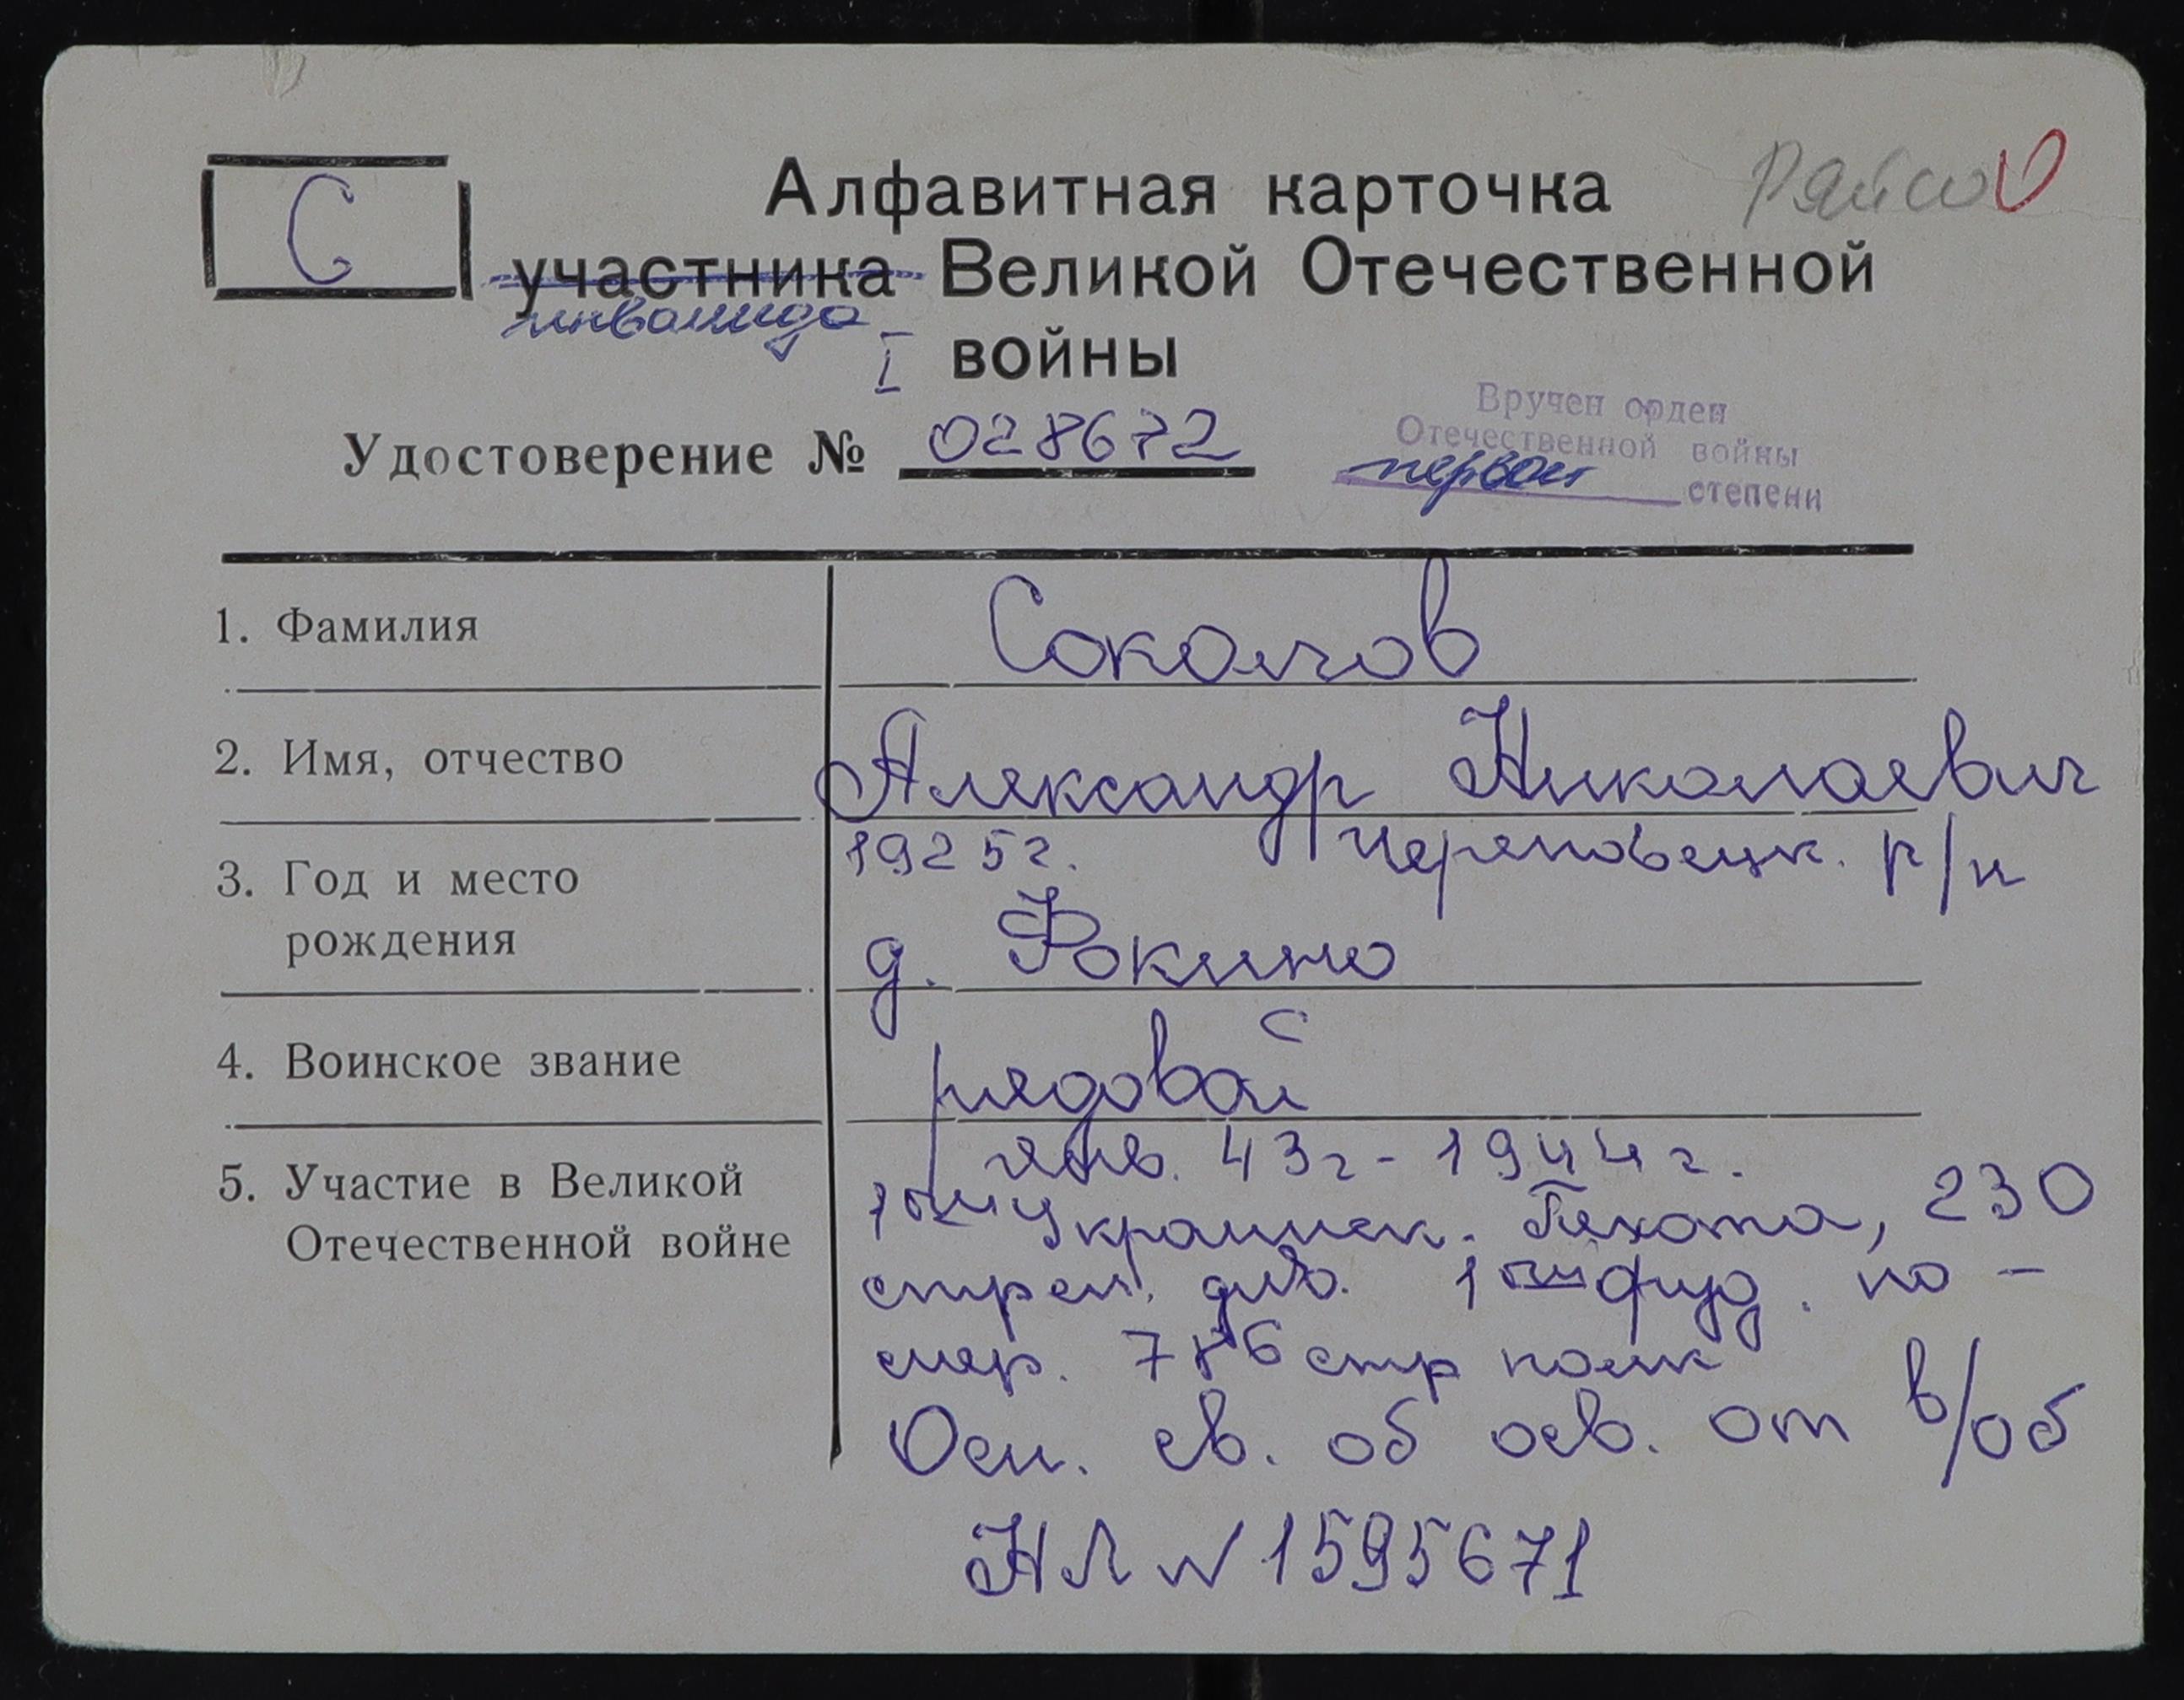 С
Алфавитная карточка
райсо
участника Великой Отечественной
инвалида I войны
Удостоверение № 028672
Вручен орден
Отечественной войны
первой степени
1. Фамилия Соколов
2. Имя, отчество Александр Николаевич
3. Год и место 1925г. Череповецк. р/н
рождения д. Фокино
4. Воинское звание рядовой
5. Участие в Великой янв. 43г - 1944г.
Отечественной войне 1ый Украинск. Пехота, 230
стрел. див. 1ый фуд. но-
мер. 786 стр полк
Осн. св. об осв. от в/об
НЛ № 1595671